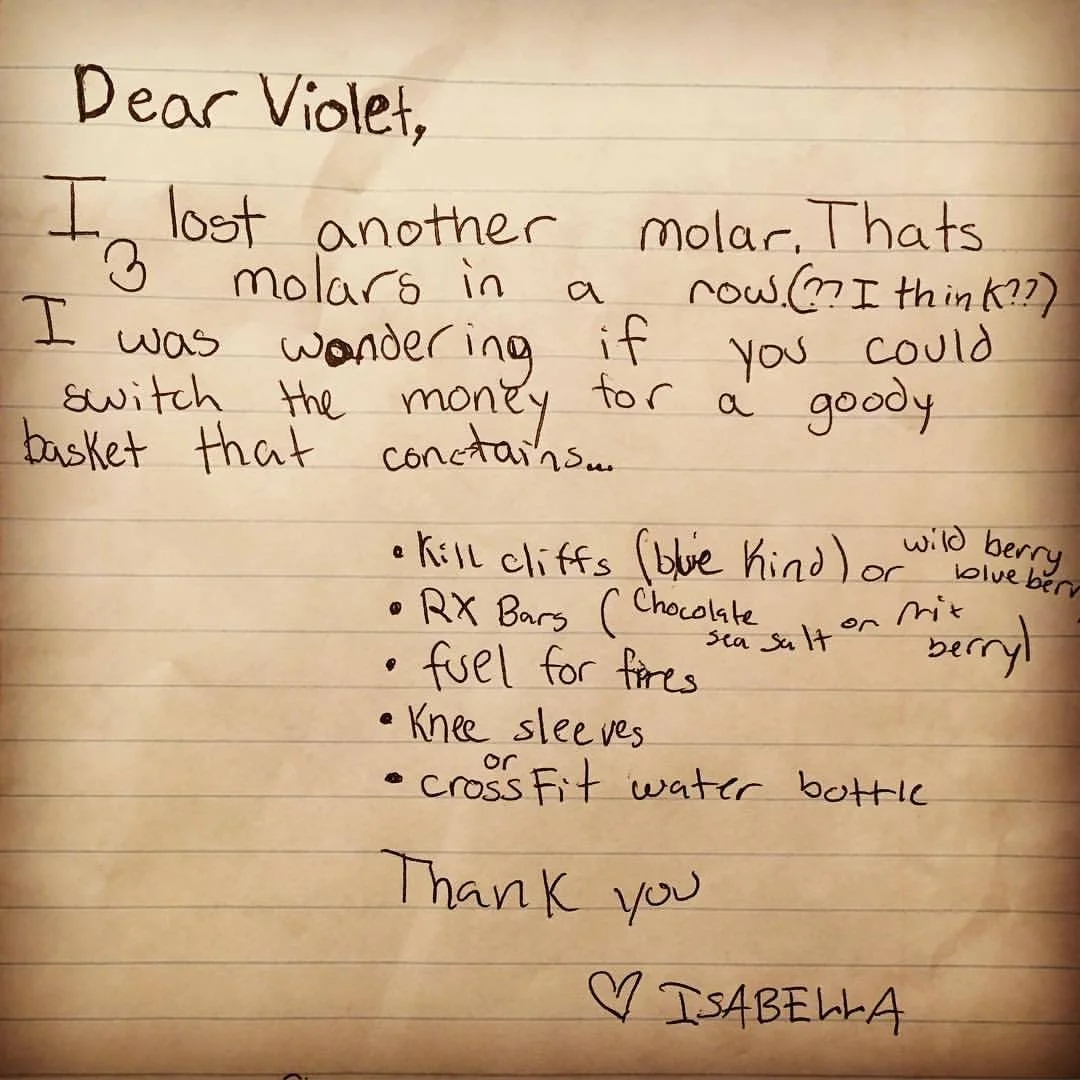 Dear Violet,
I lost another molar. Thats
3 molars in a row.(??I think??)
I was wondering if you could
switch the money for a goody
basket that conctains...
• Kill cliffs (blue Kind) or wild berry
blueberr
• RX Bars (Chocolate
sea salt or mix
berry)
• fuel for fires
• Knee sleeves
or
• crossFit water bottle
Thank you
♡ ISABELLA